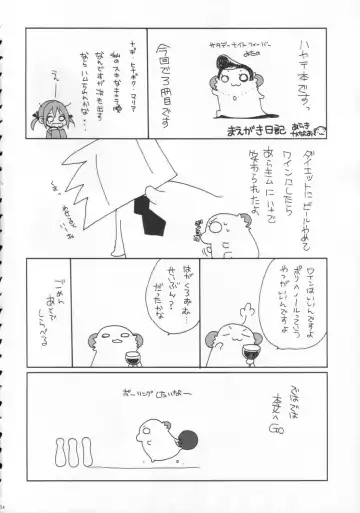 ハヤテ本ですっ
サタデーナイトフィーバー
みたの
まえがき日記
あらき
かなお
今回で3冊目です
ナギ・ヒナギク・マリア
私のスキなキャラ
なんですが泣き出す
ならハムちゃんかな…
えー
ダイエットにビールやめて
ワインにしたら
あらきムにすで
笑われたよ
ワインはいいんですよ
ポリヘノールっていう
やつがいいんですよ
はがくろみね…
せいぶん?
だったかな
ごめん
あとで
しらべる
ボーリングしたいなー
ではでは
本文へGO